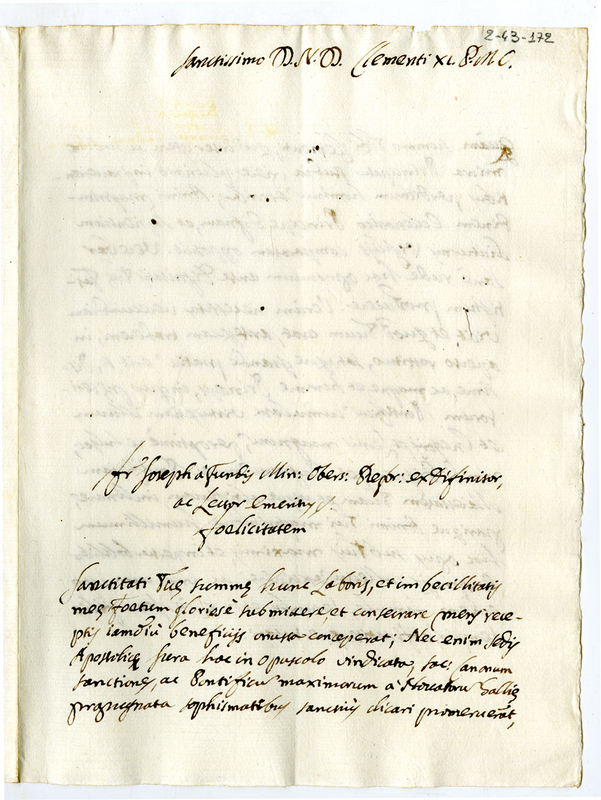 2-43-172
Sanctissimo D. N. D. Clementi XI. P. M. C.
Fr. Joseph à Min: Obers: Refor: exdifinitor,
ac Lector Emeritus
foelicitatem
Sanctitati Tuę summę hunc Laboris, et imbecillitatis
meę Foetum gloriosè submittere, et consecrare mens rece-
ptis iamdiù beneficijs onusta conceperat; Nec enim Sedis
Apostolicę Iura hac in opuscolo vindicata, sac: anonum
sanctiones, ac Pontificu maximorum à Novatoru Gallię
propugnata sophismatibus sanctius dicari promeruerãt,